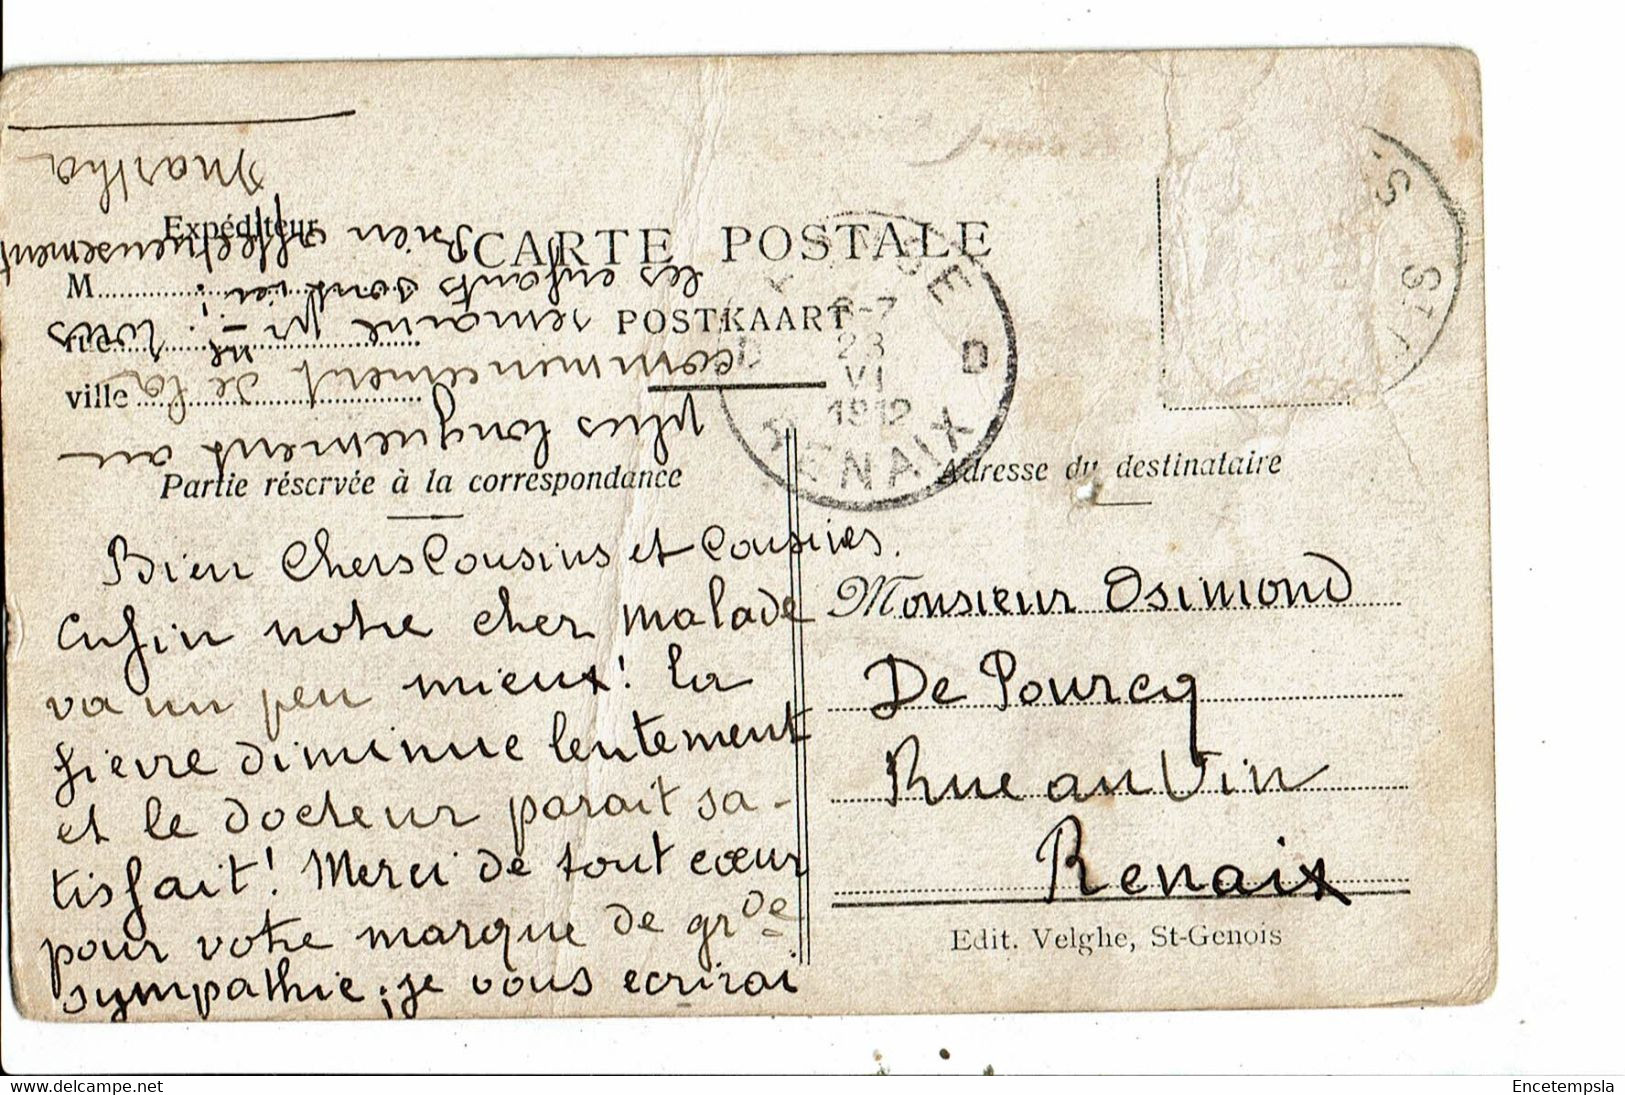 CARTE POSTALE
POSTKAART
Expéditeur
M
rue
ville
Partie réservée à la correspondance
Bien Chers Cousins et Cousines.
Enfin notre cher malade
va un peu mieux! la
fièvre diminue lentement
et le docteur parait sa-
tisfait! Merci de tout cœur
pour votre marque de grde
sympathie; je vous ecrirai
plus longuement au
commencement de la
semaine pr ne - tous
les enfants sont ici!
Bien affectueusement
Martha
Adresse du destinataire
Monsieur Osimond
De Pourcq
Rue au Vin
Renaix
Edit. Velghe, St-Genois
6-7
23
VI
1912
D
RENAIX
Encetempsla